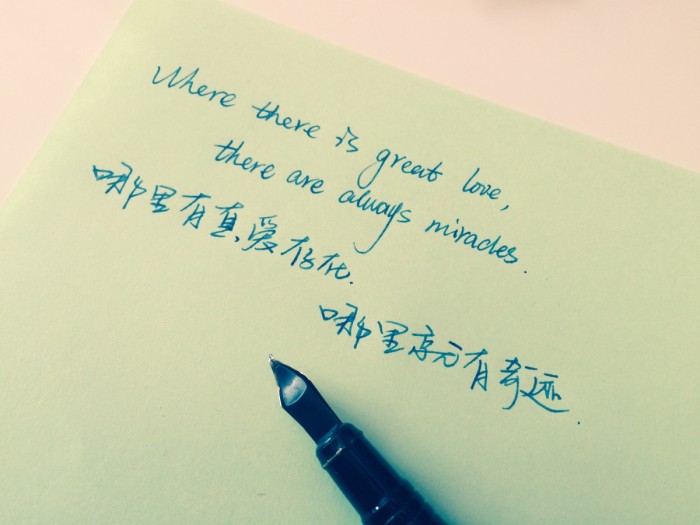 Where there is great love,
there are always miracles.
哪里有真爱存在.
哪里就有奇迹.